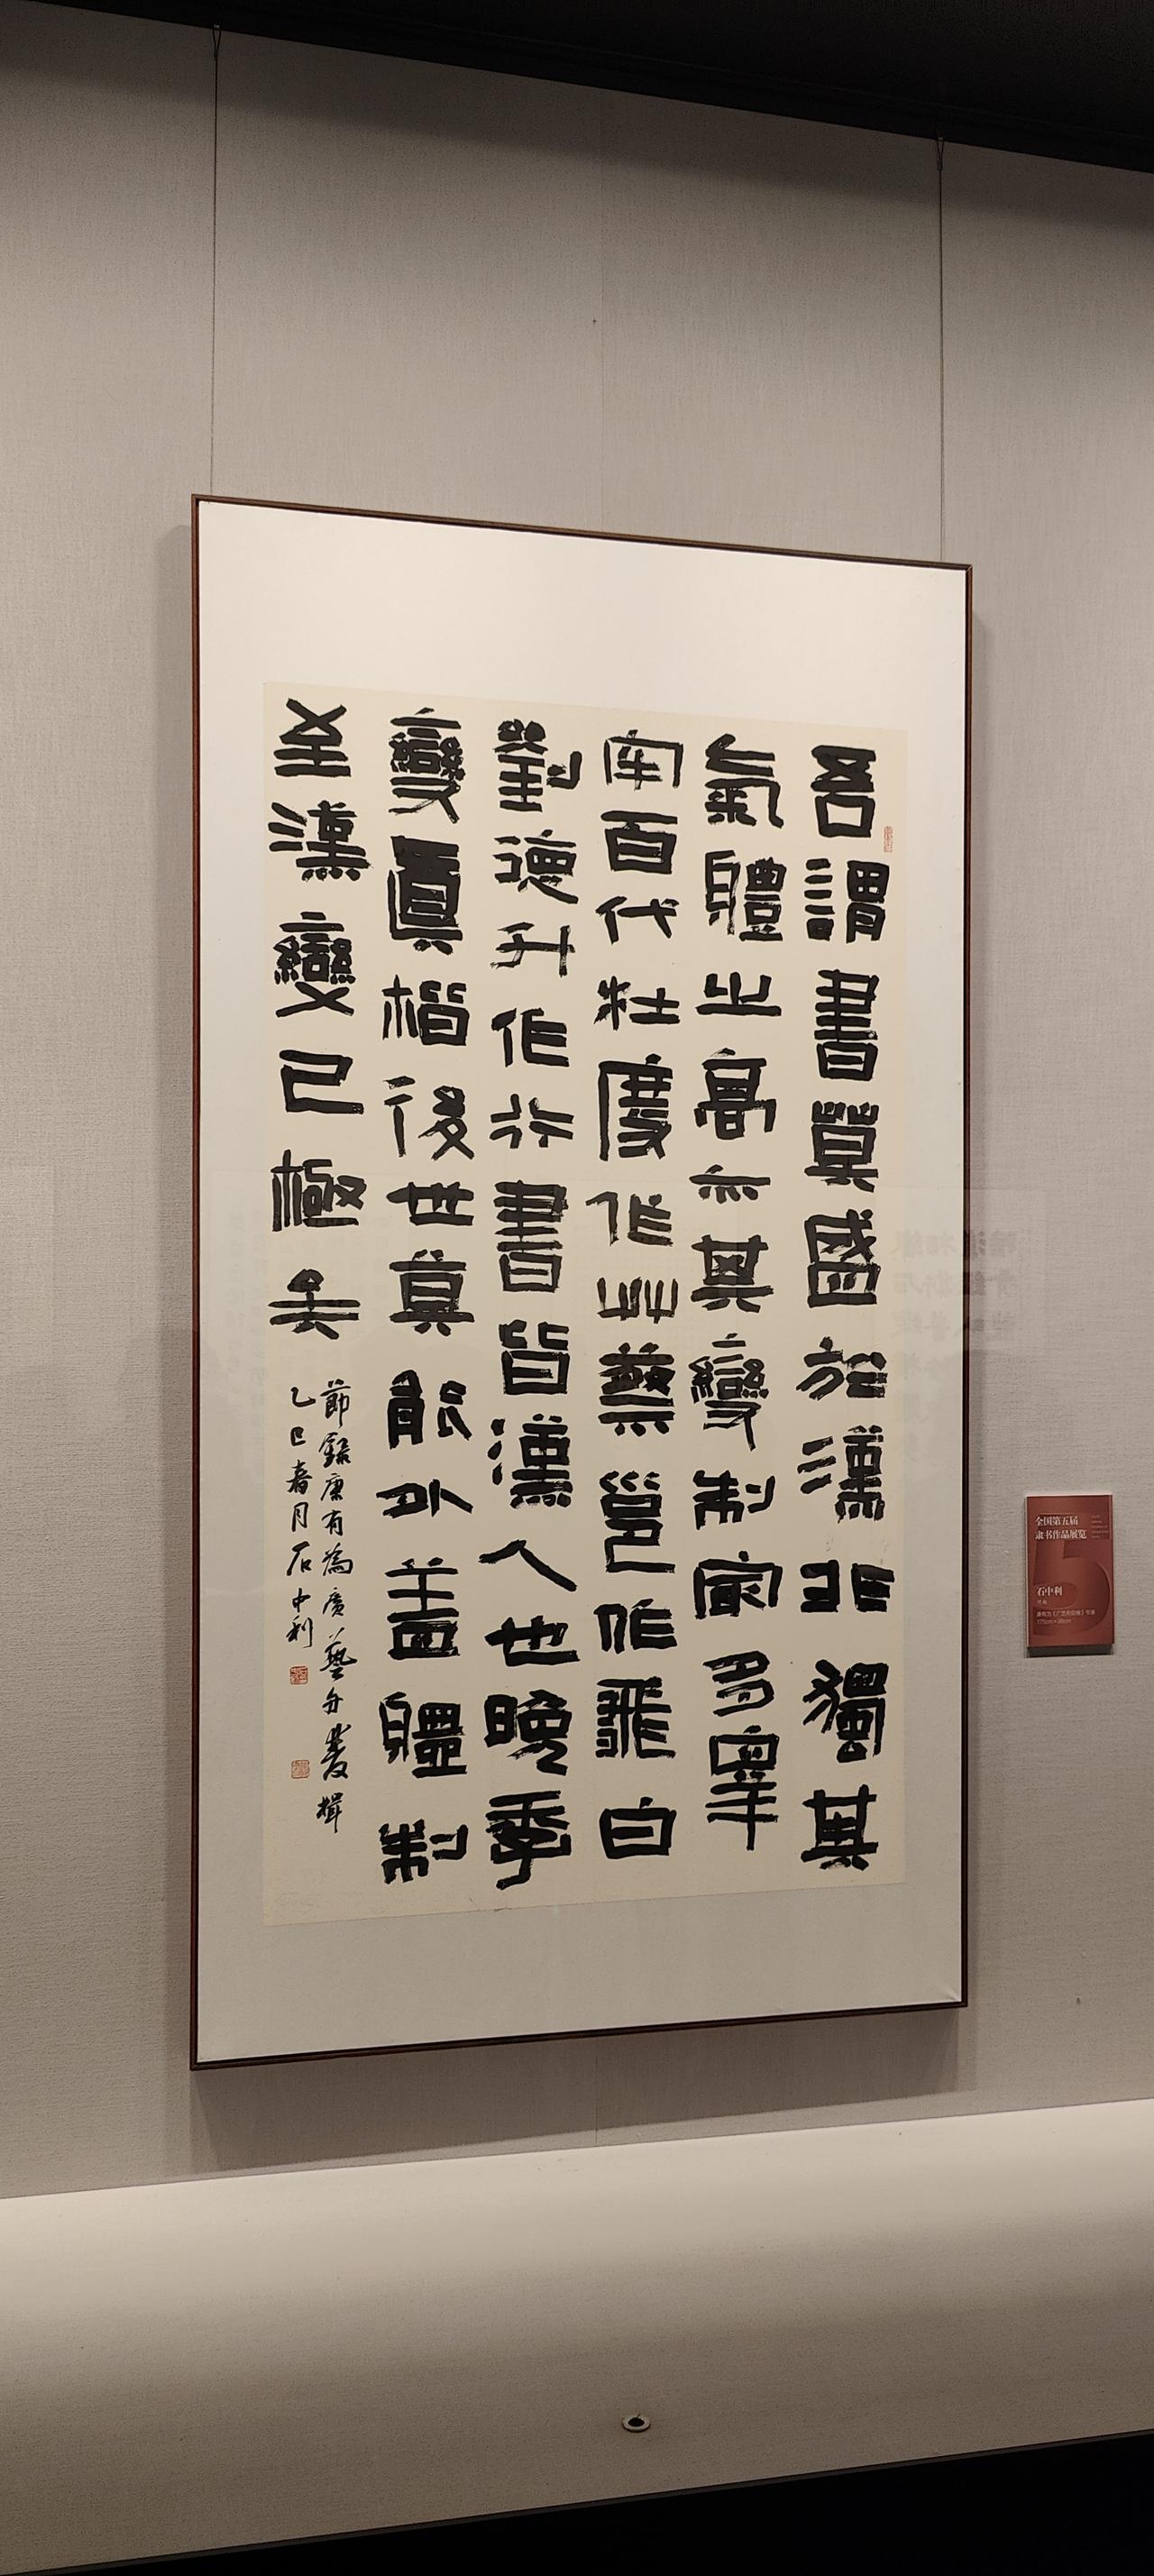 吾謂書莫盛於漢非獨其
氣體之高亦其變制冣多皋
牢百代杜度作艸蔡邕作飛白
劉德升作行書皆漢人也晚季
變眞楷後世莫能外蓋體制
至漢變已極矣
節錄康有為廣藝舟雙楫
乙巳春月石中利
全国第五届
隶书作品展览
石中利
康有为《广艺舟双楫》节录